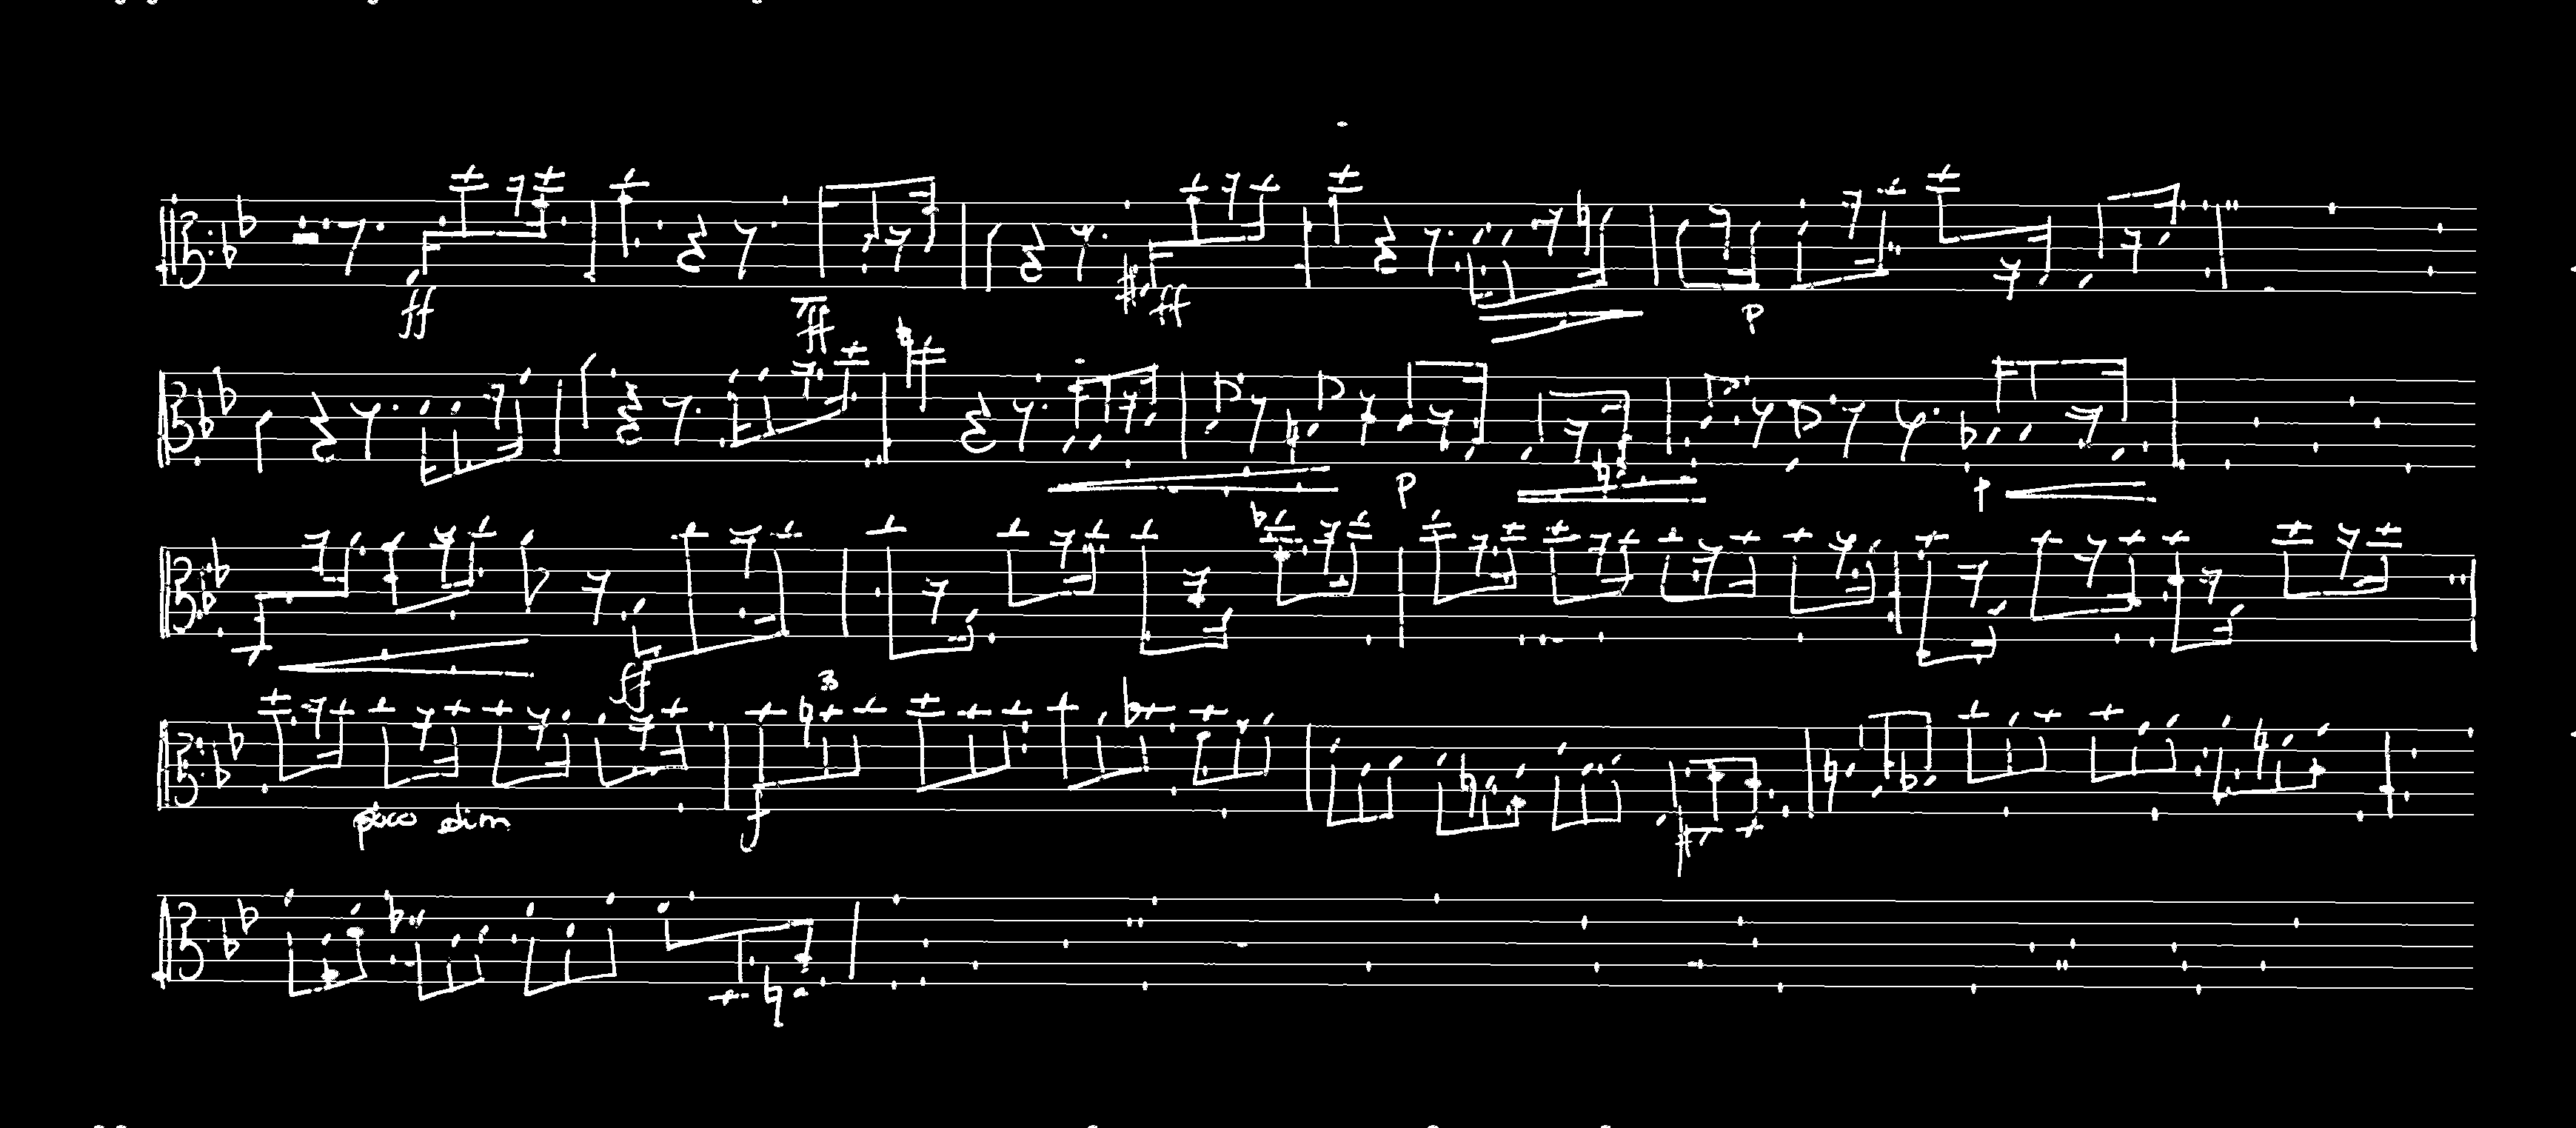 ff ff ff p
p p
ff 3
poco dim f